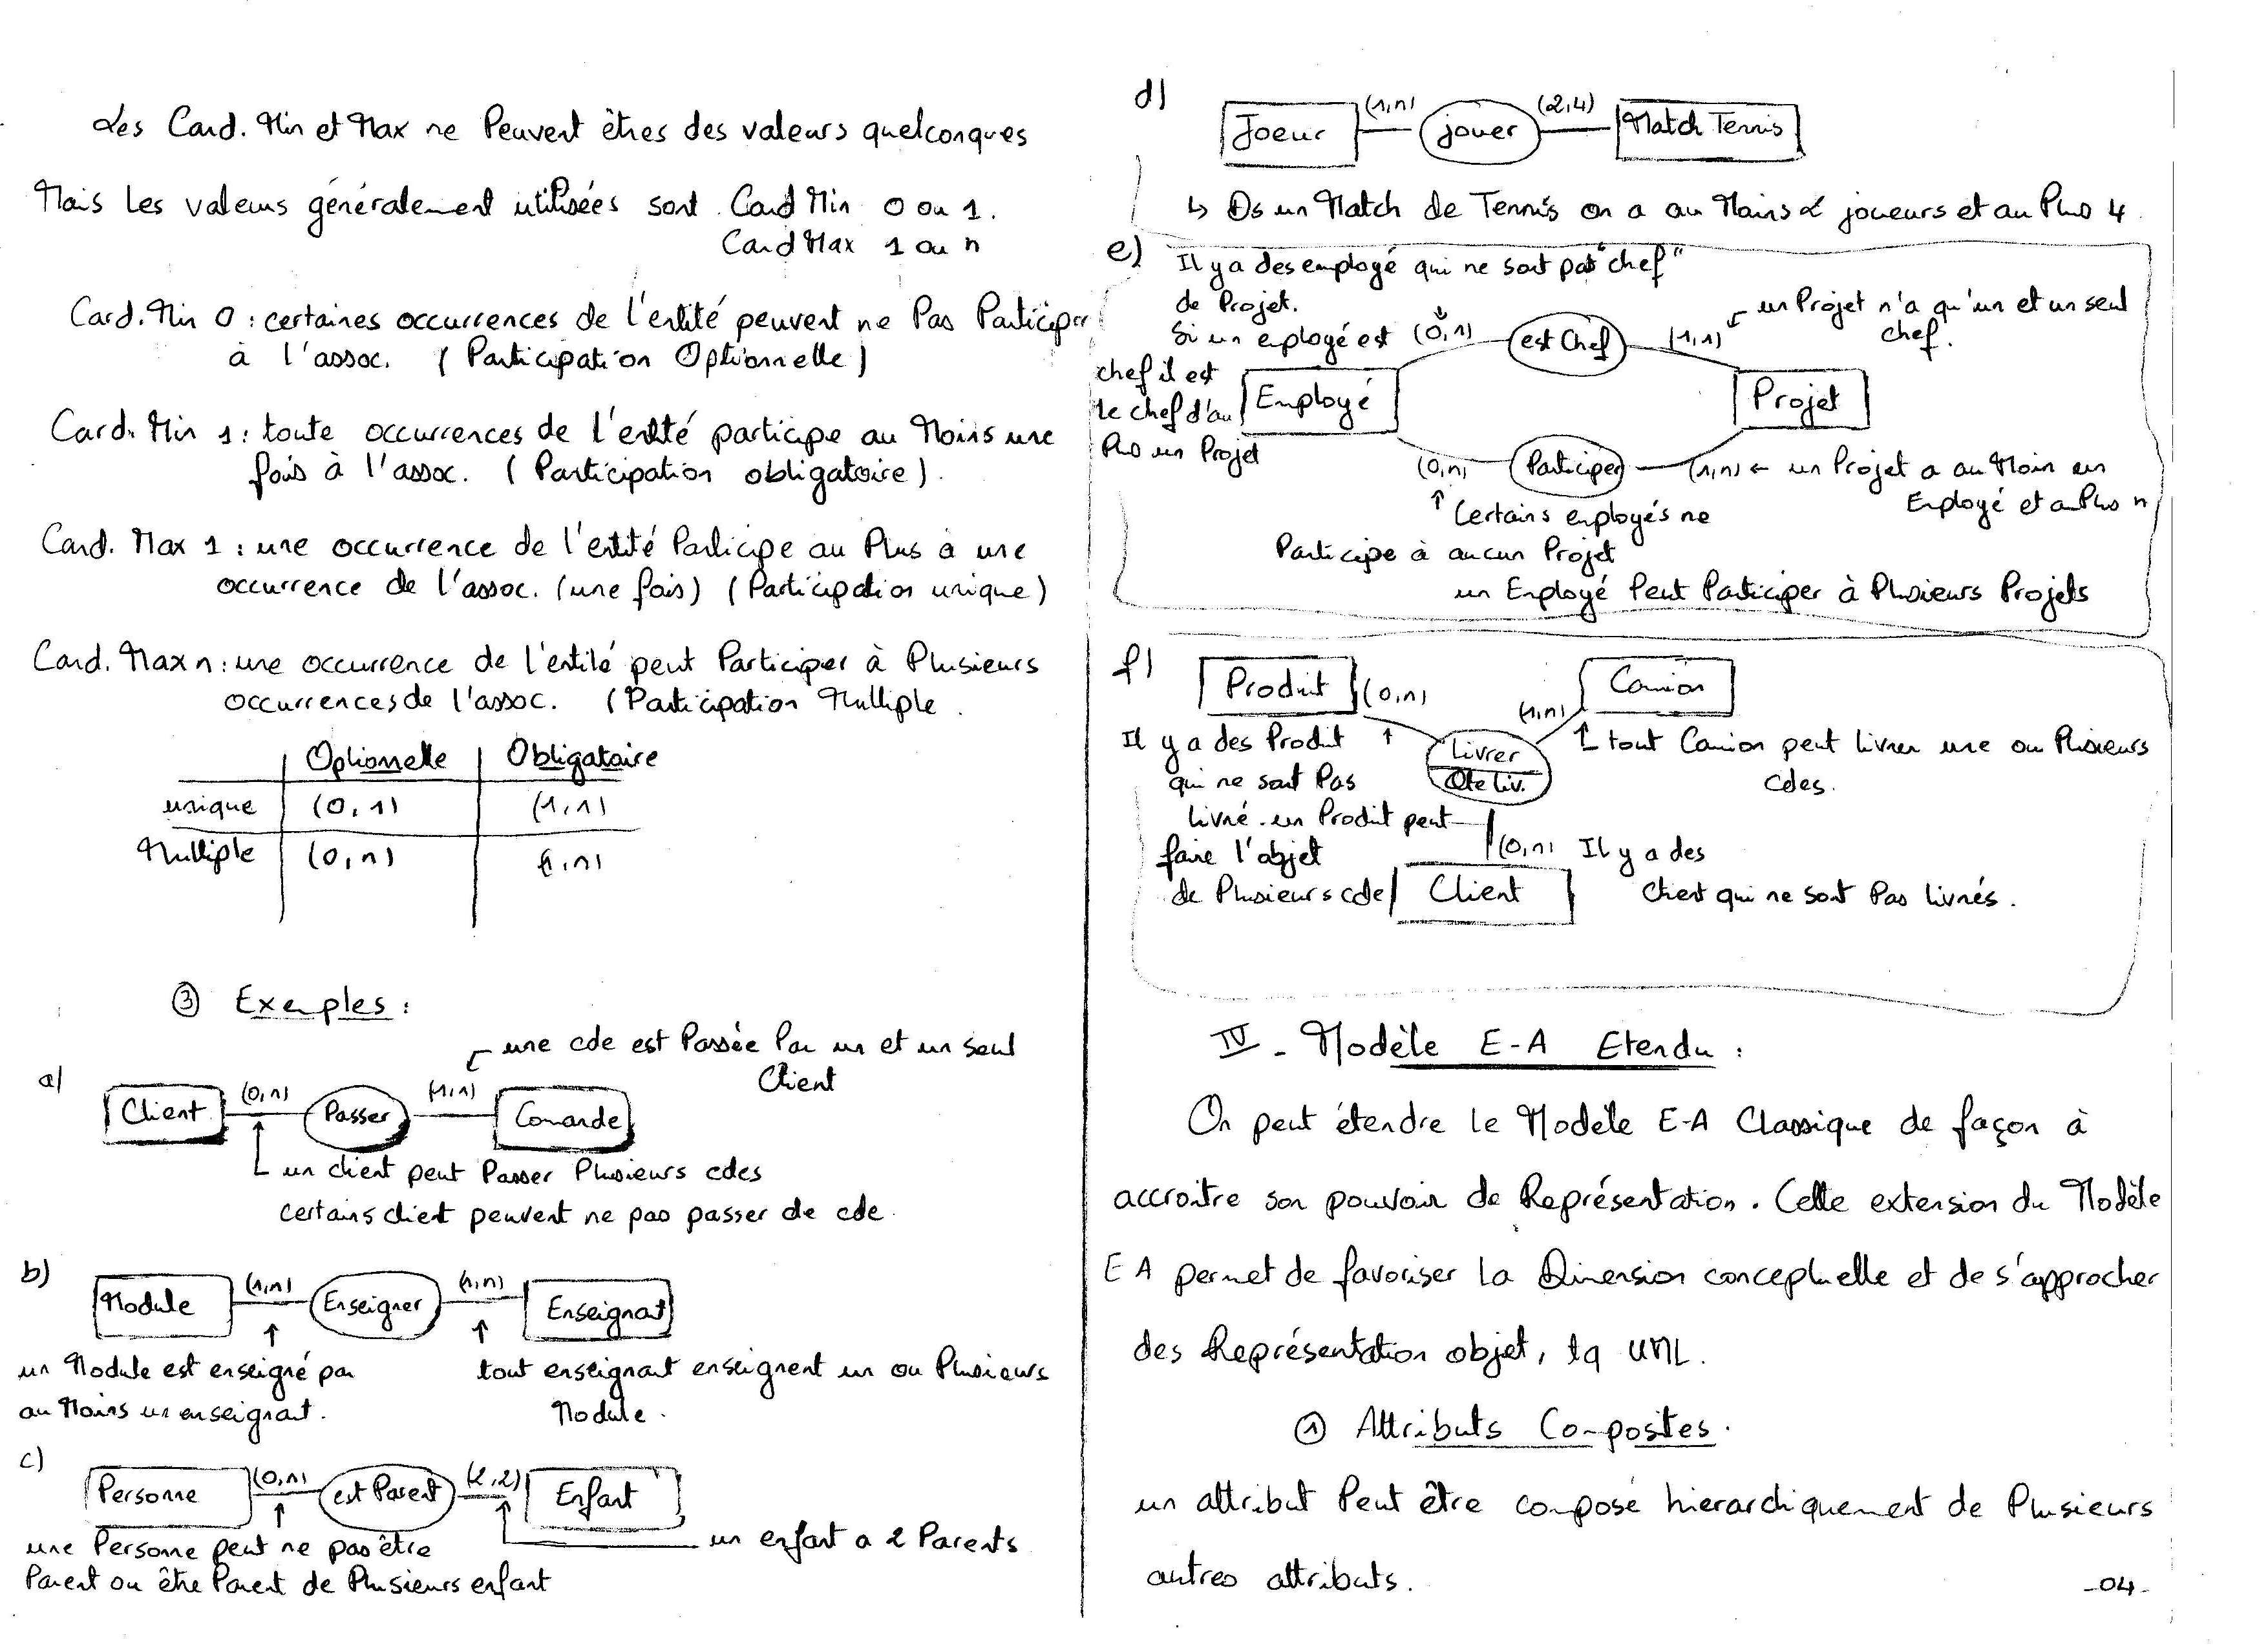 Les Card. Min et Max ne Peuvent êtres des valeurs quelconques
Mais les valeurs généralement utilisées sont Card Min 0 ou 1.
Card Max 1 ou n
Card. Min 0 : certaines occurrences de l'entité peuvent ne Pas Participer
à l'assoc. (Participation Optionnelle)
Card. Min 1 : toute occurrences de l'entité participe au Moins une
fois à l'assoc. (Participation obligatoire).
Card. Max 1 : une occurrence de l'entité Participe au Plus à une
occurrence de l'assoc. (une fois) (Participation unique)
Card. Max n : une occurrence de l'entité peut Participer à Plusieurs
occurrences de l'assoc. (Participation Multiple.
Optionnelle Obligatoire
unique (0,1) (1,1)
Multiple (0,n) (1,n)
③ Exemples :
une cde est Passée Par un et un seul
Client
a) Client (0,n) Passer (1,1) Comande
un client peut Passer Plusieurs cdes
certains client peuvent ne pas passer de cde.
b) Module (1,n) Enseigner (1,n) Enseignat
un Module est enseigné par
au Moins un enseignant.
tout enseignant enseignent un ou Plusieurs
Module.
c) Personne (0,n) est Parent (2,2) Enfant
une Personne peut ne pas être
Parent ou être Parent de Plusieurs enfant
un enfant a 2 Parents
d) Joeur (1,n) jouer (2,4) Match Tennis
↳ Ds un Match de Tennis on a au Moins 2 joueurs et au Plus 4.
e) Il y a des employé qui ne sont pas "chef"
de Projet.
Si un eployé est
chef il est
le chef d'au
Plus un Projet
(0,1) est Chef (1,1)
un Projet n'a qu'un et un seul
chef.
Employé Projet
(0,n) Participer (1,n) ← un Projet a au Moin un
Employé et au Plus n
↑ Certains employés ne
Participe à aucun Projet
un Employé Peut Participer à Plusieurs Projets
f) Produit (0,n) (1,n) Camion
Livrer
Qte Liv.
Il y a des Produit
qui ne sont Pas
livré. un Produit peut
faire l'objet
de Plusieurs cde
tout Camion peut livrer une ou Plusieurs
cdes.
(0,n) Il y a des
Client
Client qui ne sont Pas livrés.
IV - Modèle E-A Etendu :
On peut étendre le Modèle E-A Classique de façon à
accroitre son pouvoir de Représentation. Cette extension du Modèle
E A permet de favoriser la Dimension conceptuelle et de s'approcher
des Représentation objet, tq UML.
① Attributs Composites.
un attribut Peut être composé hierarchiquement de Plusieurs
autres attributs.
-04-